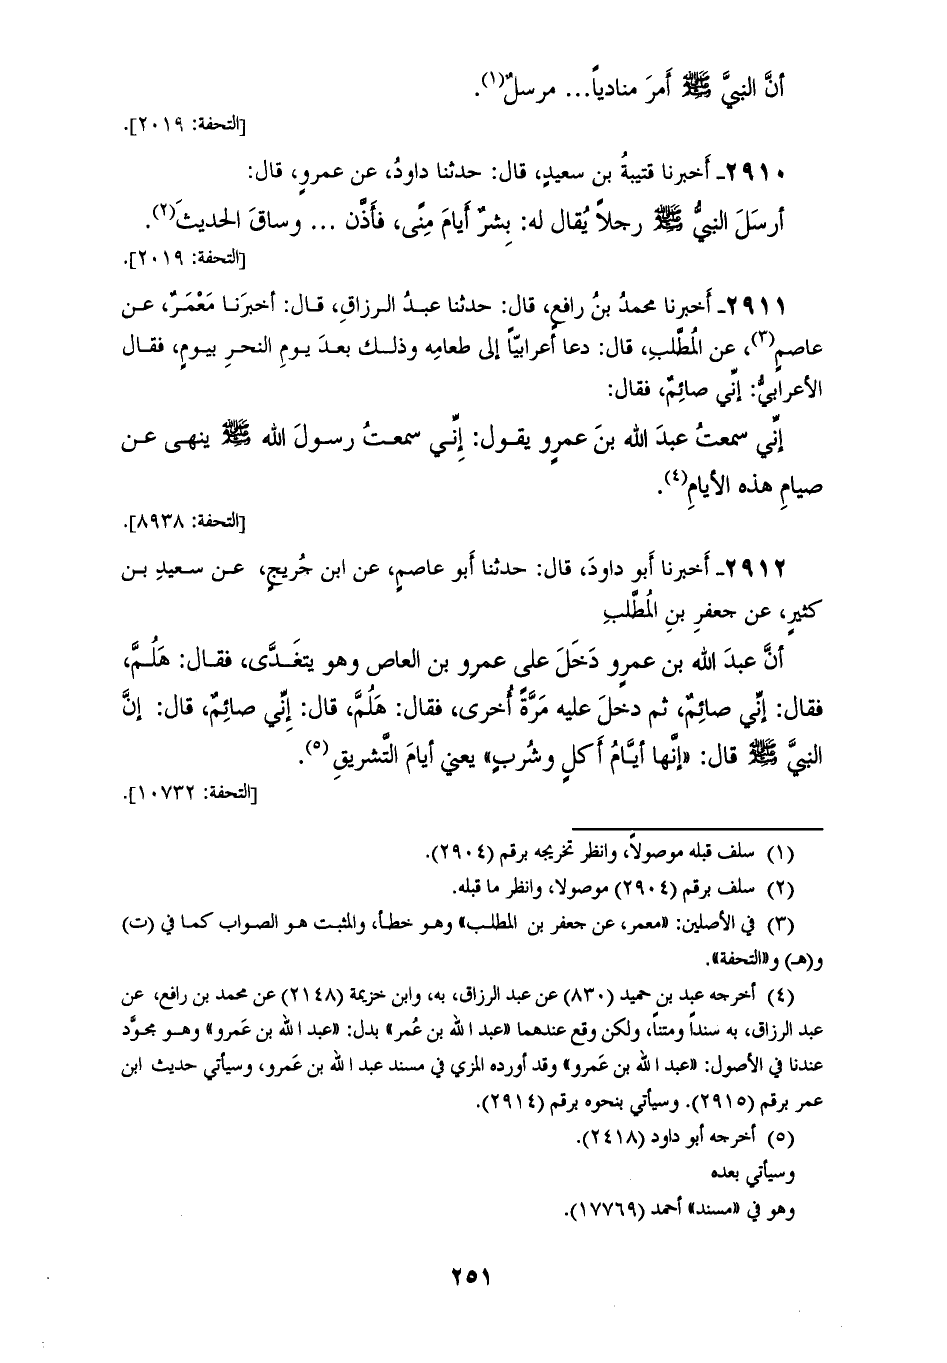 أنَّ النبيَّ ﷺ أَمرَ منادياً... مرسلٌ(١).
[التحفة: ٢٠١٩].
٢٩١٠ـ أَخبرنا قتيبةُ بن سعيدٍ، قال: حدثنا داودُ، عن عمرٍو، قال:
أرسَلَ النبيُّ ﷺ رجلاً يُقال له: بِشرٌ أَيامَ مِنًى، فأَذَّن ... وساقَ الحديثَ(٢).
[التحفة: ٢٠١٩].
٢٩١١ـ أَخبرنا محمدُ بنُ رافعٍ، قال: حدثنا عبدُ الرزاقِ، قال: أخبرَنا مَعْمَرٌ، عن
عاصمٍ(٣)، عن المُطَّلبِ، قال: دعا أعرابيّاً إلى طعامِه وذلك بعدَ يومِ النحرِ بيومٍ، فقال
الأعرابيُّ: إنِّي صائِمٌ، فقال:
إنِّي سمعتُ عبدَ الله بنَ عمرٍو يقول: إنِّي سمعتُ رسولَ الله ﷺ ينهى عن
صيامِ هذه الأيامِ(٤).
[التحفة: ٨٩٣٨].
٢٩١٢ـ أَخبرنا أَبو داودَ، قال: حدثنا أَبو عاصمٍ، عن ابن جُريجٍ، عن سعيدِ بن
كثيرٍ، عن جعفرِ بنِ المُطَّلبِ
أنَّ عبدَ الله بن عمرٍو دَخَلَ على عمرِو بن العاص وهو يتغَدَّى، فقال: هَلُمَّ،
فقال: إنِّي صائِمٌ، ثم دخلَ عليه مَرَّةً أُخرى، فقال: هَلُمَّ، قال: إنِّي صائِمٌ، قال: إنَّ
النبيَّ ﷺ قال: «إنَّها أيَّامُ أَكلٍ وشُربٍ» يعني أيامَ التَّشريقِ(٥).
[التحفة: ١٠٧٣٢].
(١) سلف قبله موصولاً، وانظر تخريجه برقم (٢٩٠٤).
(٢) سلف برقم (٢٩٠٤) موصولا، وانظر ما قبله.
(٣) في الأصلين: «معمر، عن جعفر بن المطلب» وهو خطأ، والمثبت هو الصواب كما في (ت)
و(هـ) و«التحفة».
(٤) أخرجه عبد بن حميد (٨٣٠) عن عبد الرزاق، به، وابن خزيمة (٢١٤٨) عن محمد بن رافع، عن
عبد الرزاق، به سنداً ومتناً، ولكن وقع عندهما «عبد الله بن عُمر» بدل: «عبد الله بن عَمرو» وهو مجوَّد
عندنا في الأصول: «عبد الله بن عَمرو» وقد أورده المزي في مسند عبد الله بن عَمرو، وسيأتي حديث ابن
عمر برقم (٢٩١٥). وسيأتي بنحوه برقم (٢٩١٤).
(٥) أخرجه أبو داود (٢٤١٨).
وسيأتي بعده
وهو في «مسند» أحمد (١٧٧٦٩).
٢٥١